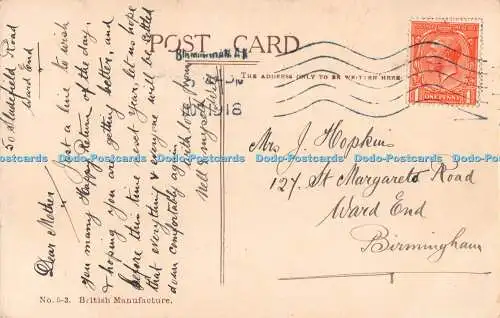 POST CARD
THE ADDRESS ONLY TO BE WRITTEN HERE
BIRMINGHAM
1918
ONE PENNY
50 Sladefield Road
Ward End
Dear Mother
Just a line to wish
you many Happy Return of the day.
& hoping you are getting better, and
before this time next year, let us hope
that everything & everyone will be settled
down comfortably again.
with love from
Nell & myself
Mrs J. Hopkins
127, St Margarets Road
Ward End
Birmingham
No. 5-3. British Manufacture.
Dodo-Postcards Dodo-Postcards Dodo-Postcards Dodo-Postcards Dodo-Postcards Dodo-Postcards